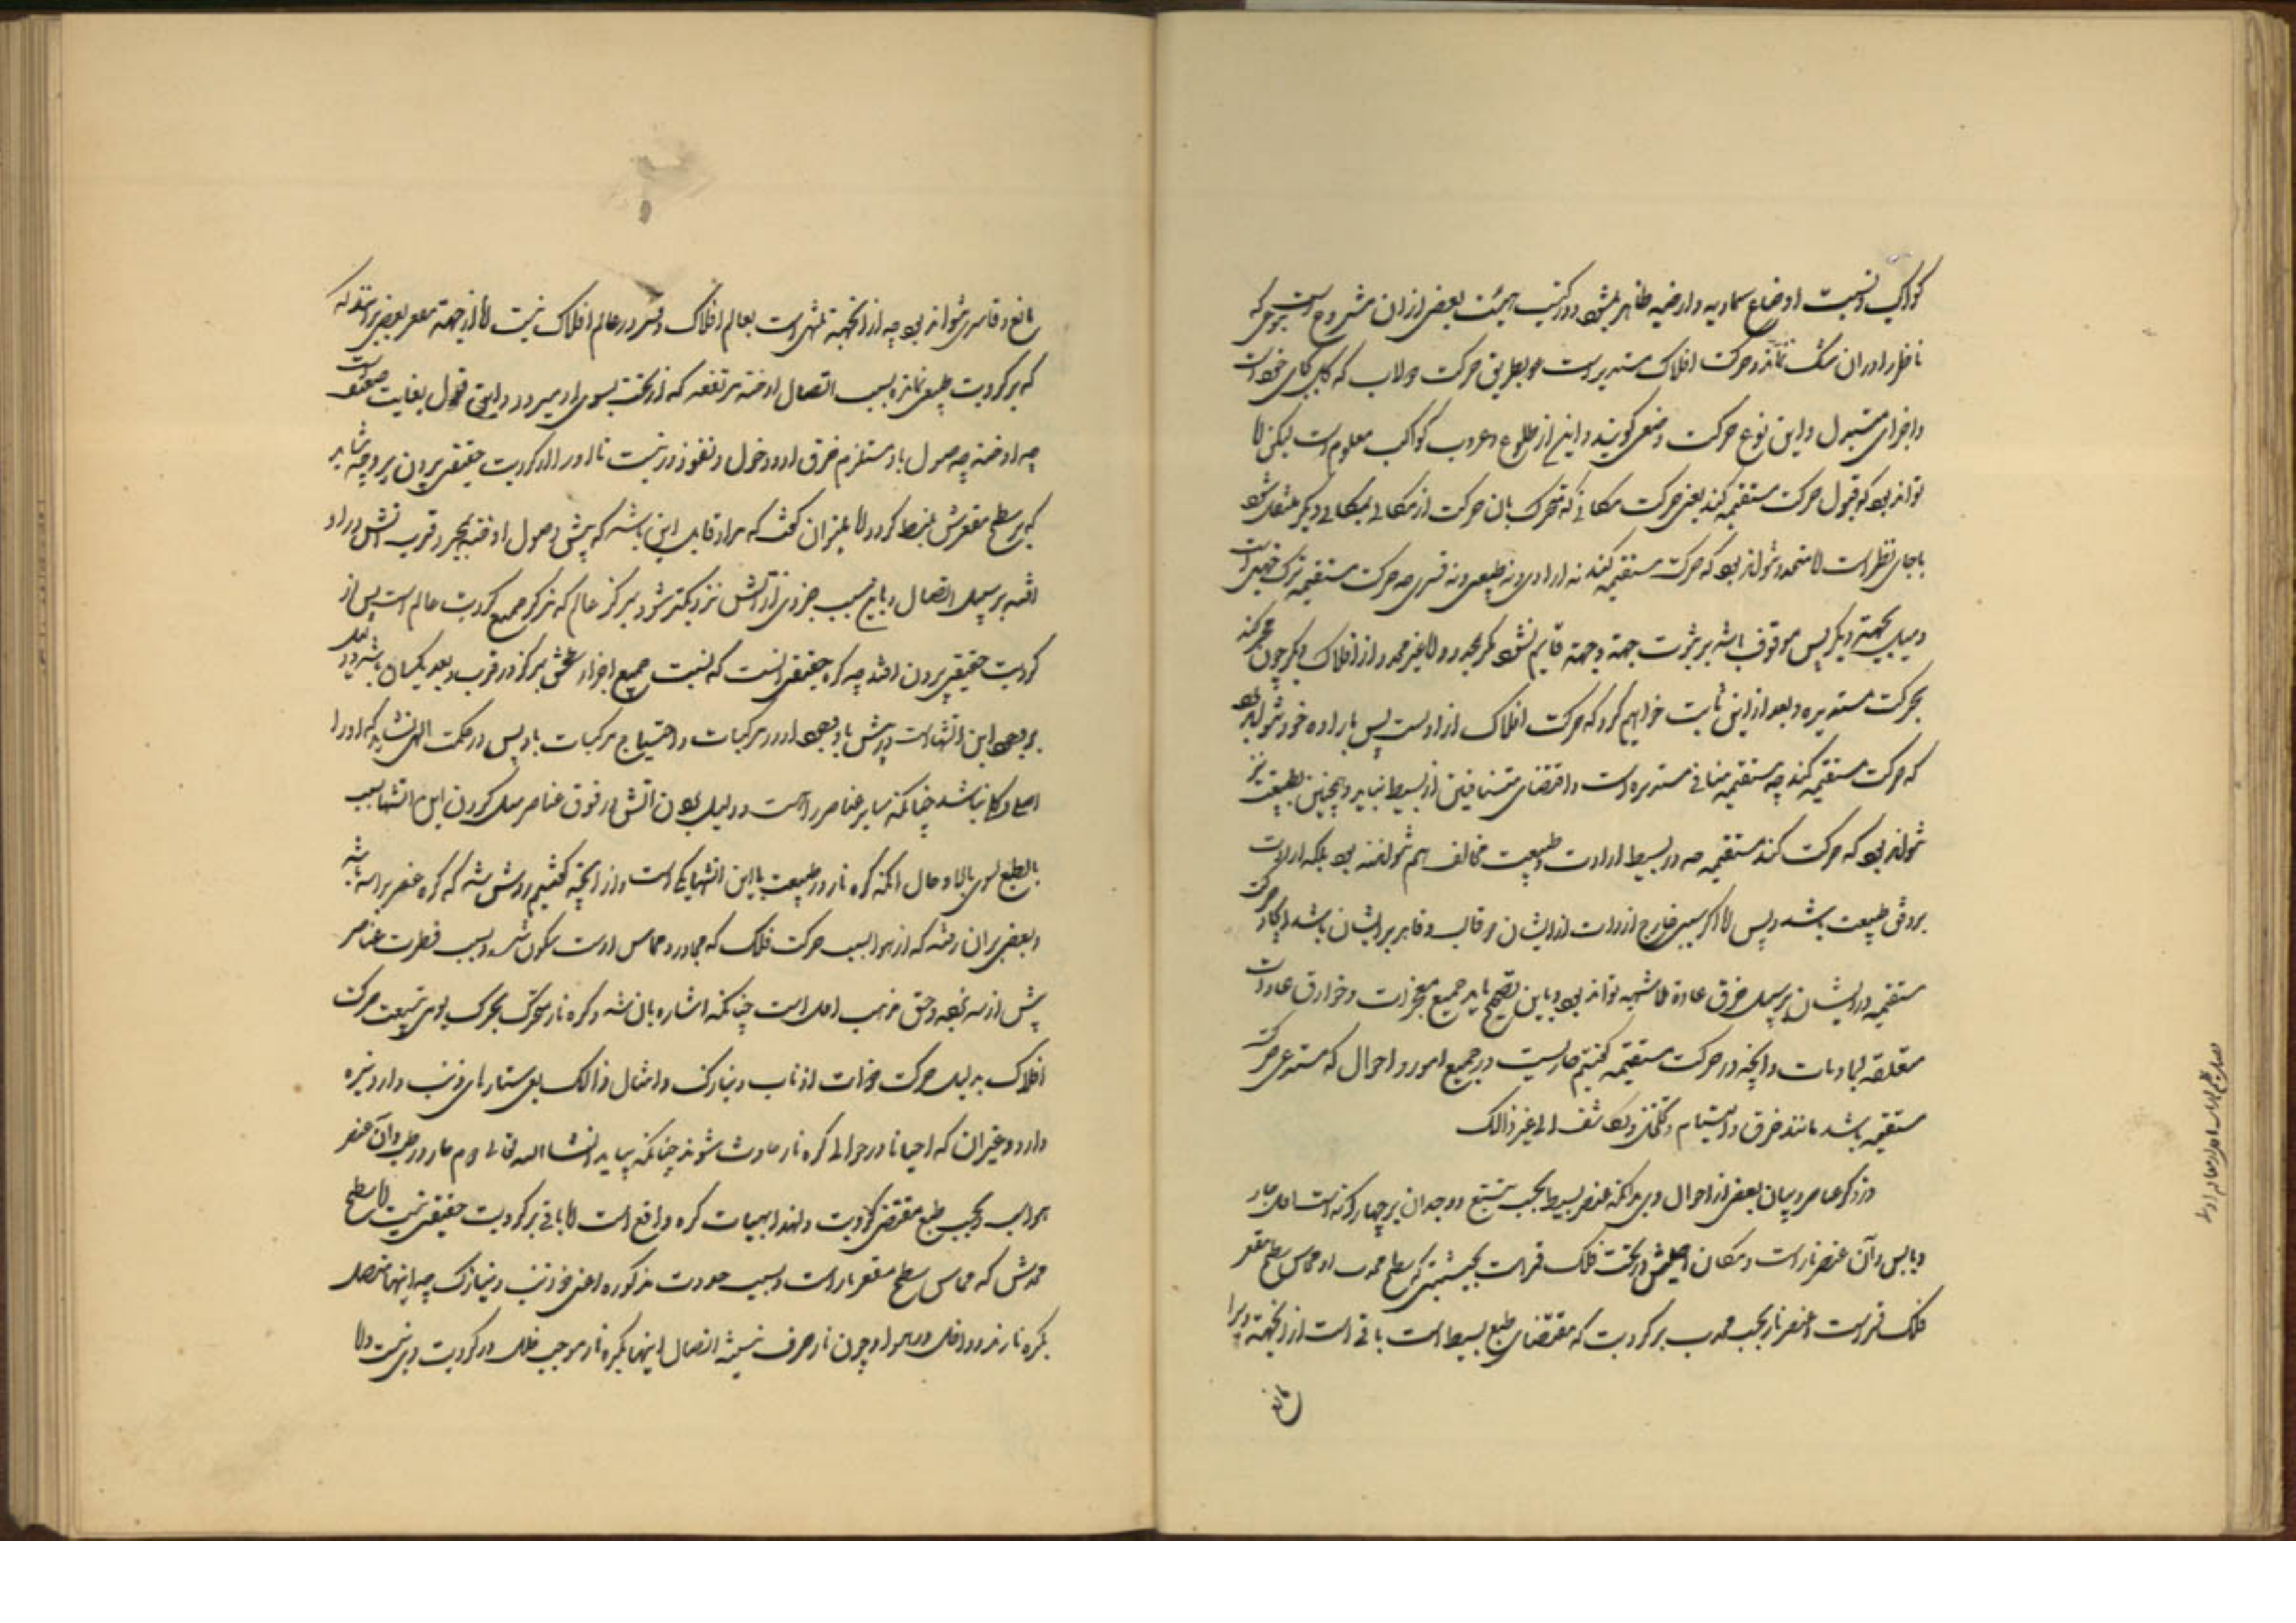 کواکب و نسبت اوضاع سماویه و ارضیه ظاهر میشود و در کتب هیئت بعضی ازان مشروح است بنوعی که
ناظر را دران شک نماند و حرکت افلاک مستدیر است و بطریق حرکت دولاب که کل بجای خود است
و اجزای متبدل و این نوع حرکت وضعی کویند و این از طلوع و غروب کواکب معلوم است لیکن لا
تواند بود که قبول حرکت مستقیمه کند یعنی حرکت مکانی که متحرک بان حرکت از مکانی بمکانی دیکر منتقل شود
باجای نظر است لا محدد نتواند بود که حرکت مستقیمه کند نه ارادی و نه طبیعی و نه قسری چه حرکت مستقیمه ترک جهتی است
و میل بجهتی دیکر پس موقوف باشد بر جهت و جهة قایم نشود مکر بمحدد و لا غیر محدد از افلاک دیکر چون
بحرکت مستدیره و بعد از این ثابت خواهیم کرد که حرکت افلاک ارادیست پس باراده خود نتواند بود
که حرکت مستقیمه کند چه مستقیمه منافی مستدیره است و اقتضای متنافیین از بسیط نیاید و همچنین بطبیعت نیز
نتواند بود که حرکت کند مستقیمه چه در بسیط ارادت و طبیعت مخالف هم نتوانند بود بلکه ارادت
بر وفق طبیعت باشد و پس لا اکر سببی خارج از ذوات ایشان و غالب و قاهر بر ایشان باشد ایجاد حرکت
مستقیمه در ایشان بر سبیل خرق عادة بلا شبهه تواند بود و باین تصحیح یابد جمیع معجزات و خوارق عادات
متعلقه بسماویات و انچه در حرکت مستقیمه کفتیم جاریست در جمیع امور و احوال که مستدعی حرکت
مستقیمه باشد مانند خرق و التیام و تخلخل و تکاثف الی غیر ذالک
در ذکر عناصر و بیان بعضی از احوال وی بدانکه عنصر بسیط بحسب تتبع و وجدان بر چهار کونه است اول حار
و یابس و آن عنصر نار است و مکان اصلیش در تحت فلک قمر است بحیثیتی که سطح محدب او مماس سطح مقعر
فلک قمر است و عنصر نار بحسب محدب بر کرویت که مقتضای طبع بسیط است باقی است از انجهة ویرا
مانع
مانع و قاسری نتواند بود چه از انجهة منتهی است بعالم افلاک و قسر در عالم افلاک نیست لا از جهة مقعر بعضی برآنند که
که بر کرویت طبیعی نمانده بسبب اتصال ادخنه مرتفعه که از تحت بسوی او میرود و این قول بغایت ضعیف است
چه ادخنه چه وصول باو مستلزم خرق او و دخول و نفوذ در نیست تا او را از کرویت حقیقی برون برد چه شاید
که بر سطح مقعرش منبسط کردد لا میتوان کفت که مراد قایل این باشد که پیش از وصول ادخنه بمجرد قرب اتش در او
افتد بر سبیل اتصال و باین سبب جزوی از آتش نزدیکتر شود بمرکز عالم که مرکز جمیع کرویت عالم است پس از
کرویت حقیقی برون افتد چه کره حقیقی انست که نسبت جمیع اجزاء سطحش بمرکز در قرب و بعد یکسان باشد
بر وجود این انتها است وجود او در مرکبات و احتیاج مرکبات باو پس در حکمت الهی نشاید که او را
اصل و کلی نباشد چنانکه سایر عناصر را است و دلیل بودن اتش در فوق عناصر میل کردن این اتشها بسبب
بالطبع بسوی بالا و حال آنکه کره نار در طبیعت با این اتشها یکی است و از انچه کفتیم روشن شد که کره عنصر براسه باشد
و بعضی بران رفته که از هوا بسبب حرکت فلک که مجاور و مماس اوست متکون شد و بسبب فطرت عناصر
پیش از سه نبوده و حق مذهب اول است چنانکه اشاره بان شد و کره نار متحرک بحرک بود بتبعیت حرکت
افلاک بدلیل حرکت ذوات اذناب و نیازک و امثال ذالک یعنی ستارهای ذنب دار و نیزه
دار و غیر ان که احیانا در حوالی کره نار حادث شوند چنانکه بیاید انشا الله تعالی دوم حار و رطب و آن عنصر
هواست و بحسب طبع مقتضی کرویت و لهذا بهیات کره واقع است لا باقی بر کرویت حقیقی نیست لا سطح
محدبش که مماس سطح مقعر نار است و بسبب حدوث مذکوره اعنی ذو ذنب و نیازک چه اینها متصل
بکره نارند و داخل در هوا و چون نار صرف نیستند اتصال اینها بکره نار موجب خلل در کرویت وی نیست ولا